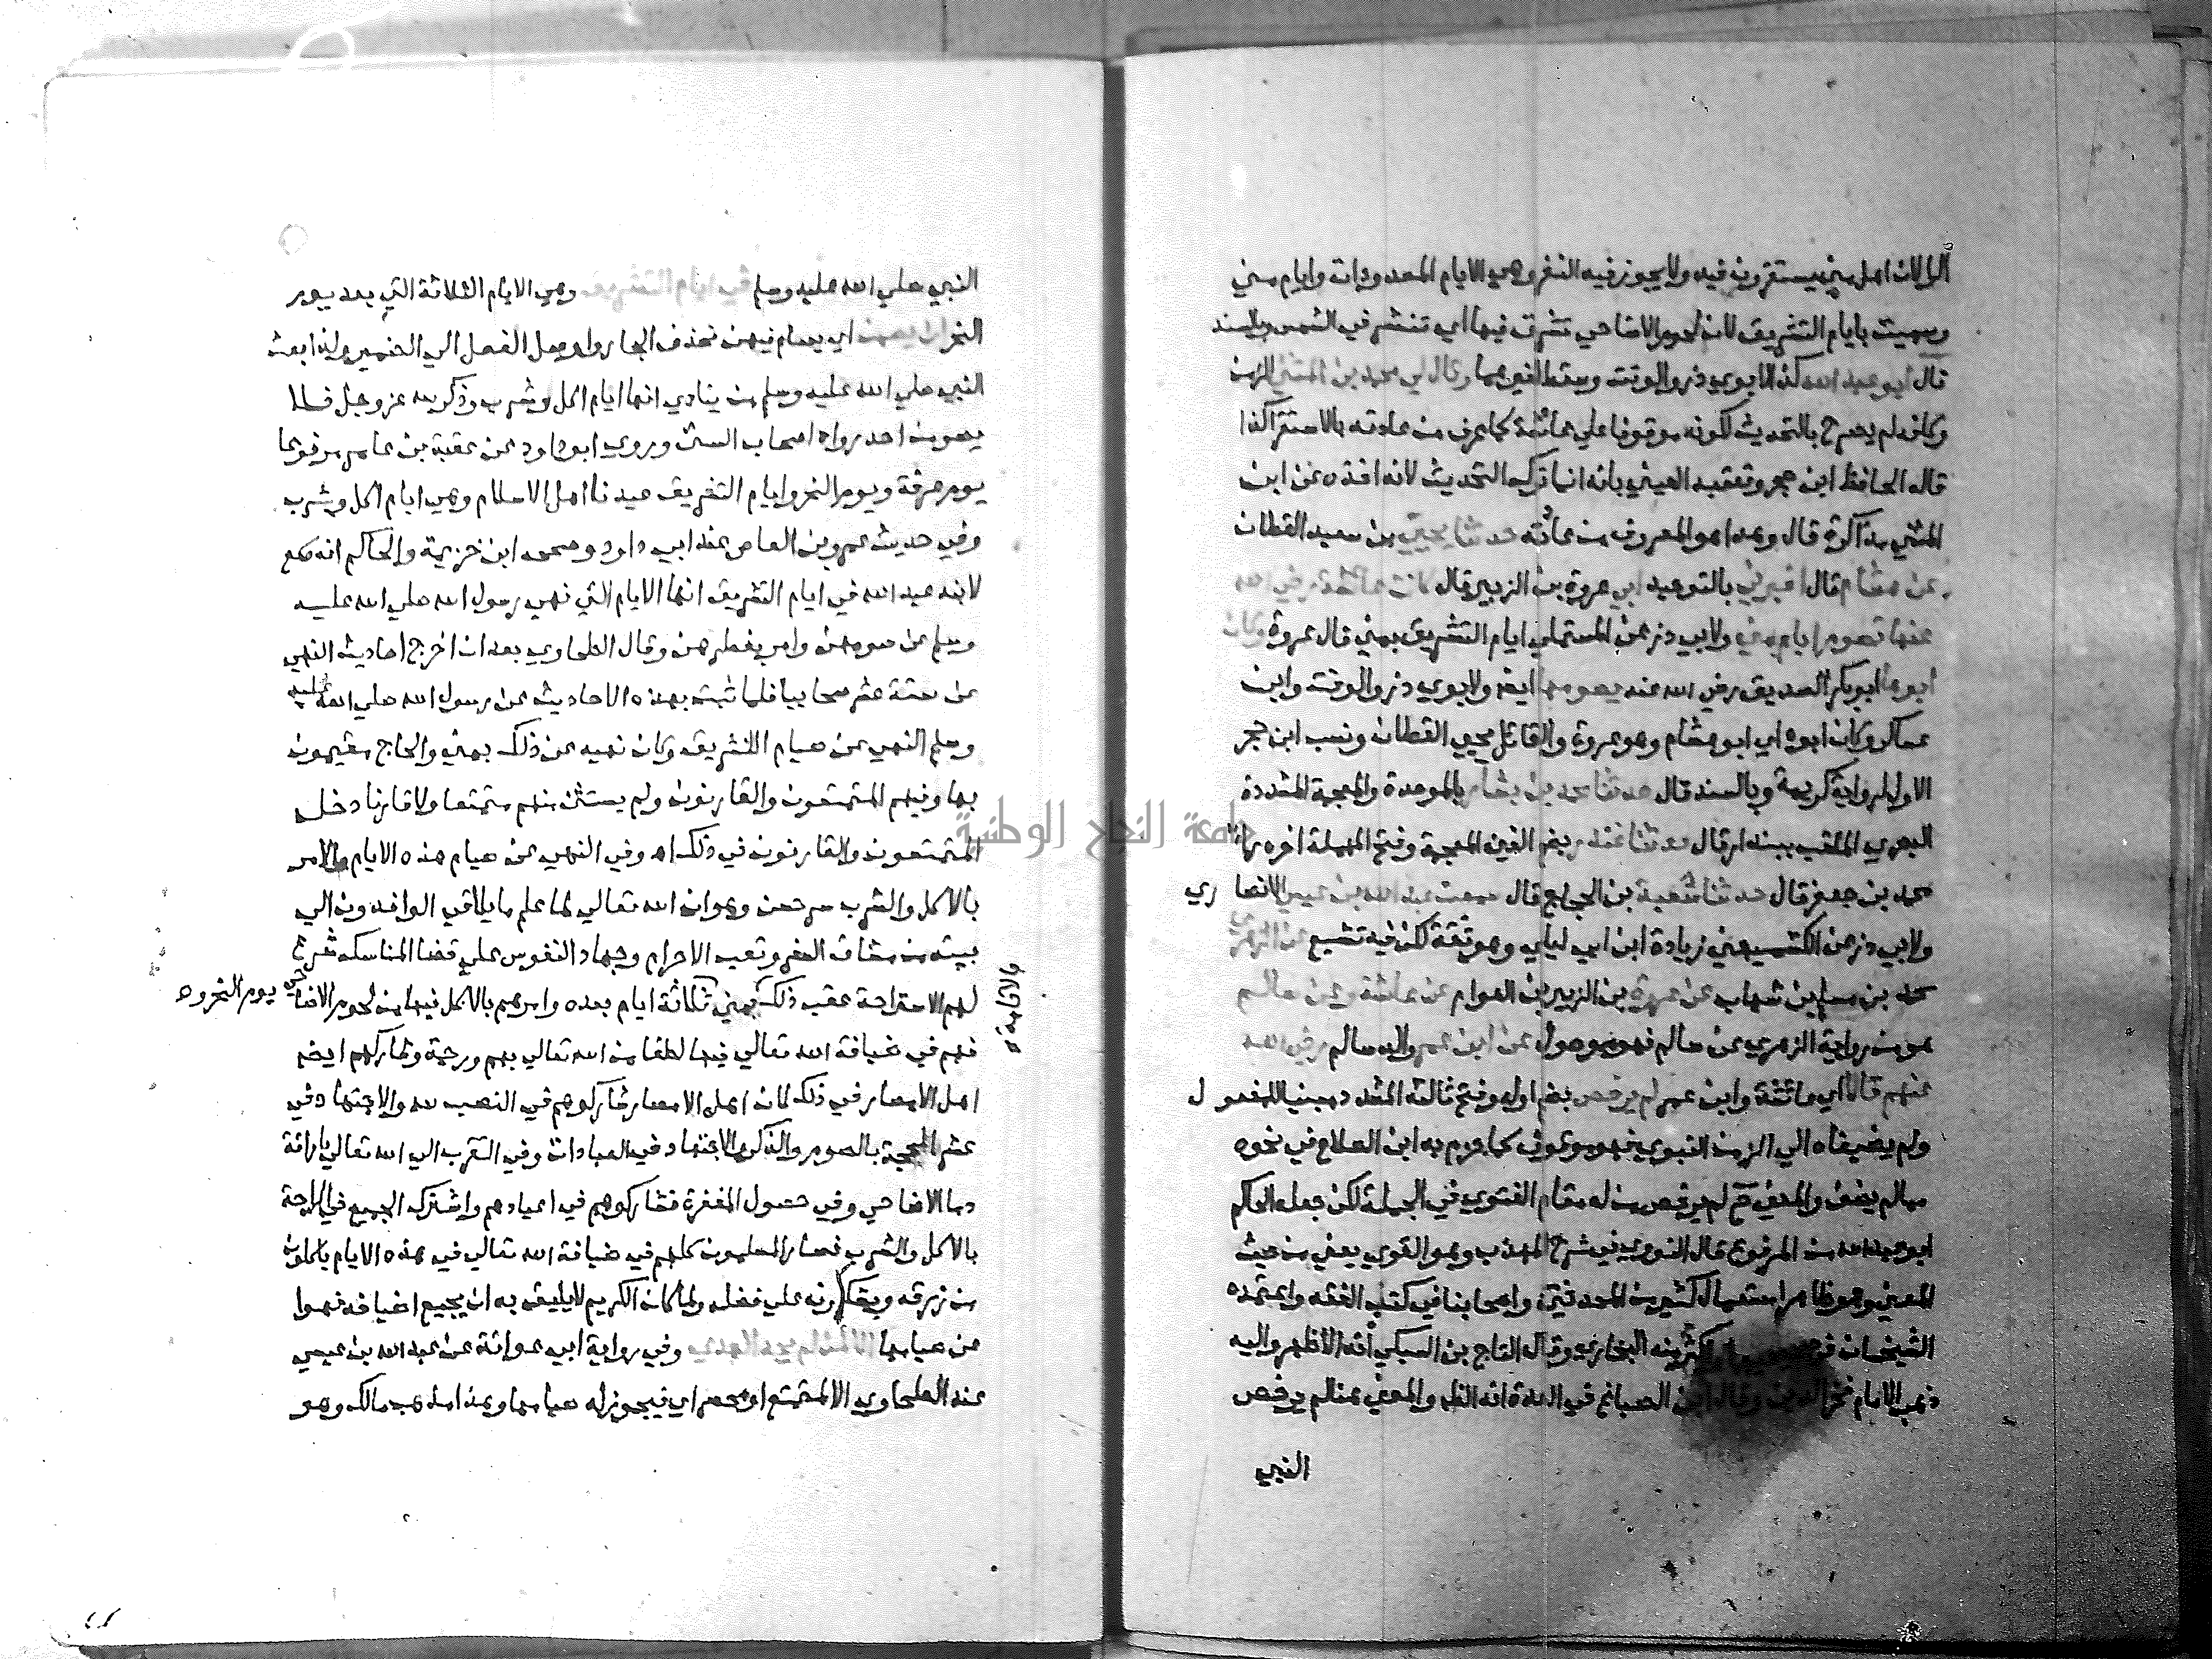 الراء لان اهل منى يستقرون فيه ولا يجوز فيه النفر وهي الايام المعدودات وايام منى
وسميت بايام التشريق لان لحوم الاضاحي تشرق فيها اي تنشر في الشمس وبالسند
قال ابو عبد الله كذا لابوي ذر والوقت وسقط لغيرهما وقال لي محمد بن المثنى الزمن
وكانه لم يصرح بالتحديث لكونه موقوفا على عائشة كما عرف من عادته بالاستقرا كذا
قاله الحافظ ابن حجر وتعقبه العيني بانه انما ترك التحديث لانه اخذه عن ابن
المثنى مذاكرة قال وهذا هو المعروف من عادته حدثنا يحيى بن سعيد القطان
عن هشام قال اخبرني بالتوحيد ابي عروة بن الزبير قال كانت عائشة رضي الله
عنها تصوم ايام منى ولابي ذر عن المستملي ايام التشريق بمنى قال عروة وكان
ابوها ابو بكر الصديق رضي الله عنه يصومها ايضا ولابوي ذر والوقت وابن
عساكر وكان ابوه اي ابو هشام وهو عروة والقائل يحيى القطان ونسب ابن حجر
الاول لرواية كريمة وبالسند قال حدثنا محمد بن بشار بالموحدة والمعجمة المشددة
البصري الملقب ببندار قال حدثنا غندر بضم الغين المعجمة وفتح المهملة اخره راء
محمد بن جعفر قال حدثنا شعبة بن الحجاج قال سمعت عبد الله بن عيسى الانصاري
ولابي ذر عن الكشميهني زيادة ابن ابي ليلى وهو ثقة لكن فيه تشيع عن الزهري
محمد بن مسلم بن شهاب عن عروة بن الزبير بن العوام عن عائشة وعن سالم
هو من رواية الزهري عن سالم فهو موصول عن ابن عمر والد سالم رضي الله
عنهم قالا اي عائشة وابن عمر لم يرخص بضم اوله وفتح ثالثه المشدد مبنيا للمفعول
ولم يضيفاه الى الزمن النبوي فهو موقوف كما جزم به ابن الصلاح في نحوه
مما لم يضف والمعنى ح لم يرخص من له مقام الفتوى في الجملة لكن جعله الحاكم
ابو عبد الله من المرفوع قال النووي في شرح المهذب وهو القوي يعني من حيث
المعنى وهو ظاهر استعمال كثير من المحدثين واصحابنا في كتب الفقه واعتمده
الشيخان في صحيحيهما واكثر منه البخاري وقال التاج بن السبكي انه الاظهر واليه
ذهب الامام فخر الدين وقال ابن الصباغ في العدة انه الظاهر والمعنى هنا لم يرخص
النبي
النبي صلي الله عليه وسلم في ايام التشريق وهي الايام الثلاثة التي بعد يوم
النحر ان يصمن اي يصام فيهن فحذف الجار واوصل الفعل الي الضمير ولذا بعث
النبي صلي الله عليه وسلم من ينادي انها ايام اكل وشرب وذكر لله عز وجل فلا
يصومن احد رواه اصحاب السنن وروى ابو داود عن عقبة بن عامر مرفوعا
يوم عرفة ويوم النحر وايام التشريق عيدنا اهل الاسلام وهي ايام اكل وشرب
وفي حديث عمرو بن العاص عند ابي داود وصححه ابن خزيمة والحاكم انه سمع
لابنه عبد الله في ايام التشريق انها الايام التي نهى رسول الله صلي الله عليه
وسلم عن صومهن وامر بفطرهن وقال الطحاوي بعد ان اخرج احاديث النهي
عن ستة عشر صحابيا فلما ثبت بهذه الاحاديث عن رسول الله صلي الله عليه
وسلم النهي عن صيام التشريق وكان نهيه عن ذلك بمنى والحاج مقيمون
بها وفيهم المتمتعون والقارنون ولم يستثن منهم متمتعا ولا قارنا دخل
المتمتعون والقارنون في ذلك اه وفي النهي عن صيام هذه الايام والامر
بالاكل والشرب سر حسن وهو ان الله تعالي لما علم ما يلاقي الوافدون الي
بيته من مشاق السفر وتعب الاحرام وجهاد النفوس على قضا المناسك شرع
لهم الاستراحة عقب ذلك بمنى ثلاثة ايام بعده وامرهم بالاكل فيها من لحوم الاضاحي
والاقامة
يوم النحر وه
فهم في ضيافة الله تعالي فيها لطفا من الله تعالي بهم ورحمة وشاركهم ايضا
اهل الامصار في ذلك لان اهل الامصار شاركوهم في النصب لله والاجتهاد في
عشر الحجة بالصوم والذكر والاجتهاد في العبادات وفي التقرب الي الله تعالي باراقة
دما الاضاحي وفي حصول المغفرة فشاركوهم في اعيادهم واشترك الجميع في الراحة
بالاكل والشرب فصار المسلمون كلهم في ضيافة الله تعالي في هذه الايام ياكلون
من رزقه ويشكرونه على فضله ولما كان الكريم لا يليق به ان يجيع اضيافه نهوا
عن صيامها الا لمن لم يجد الهدي وفي رواية ابي عوانة عن عبد الله بن عيسى
عند الطحاوي الا لمتمتع او محصر اي فيجوز له صيامها وهذا مذهب مالك وهو
جامعة النجاح الوطنية